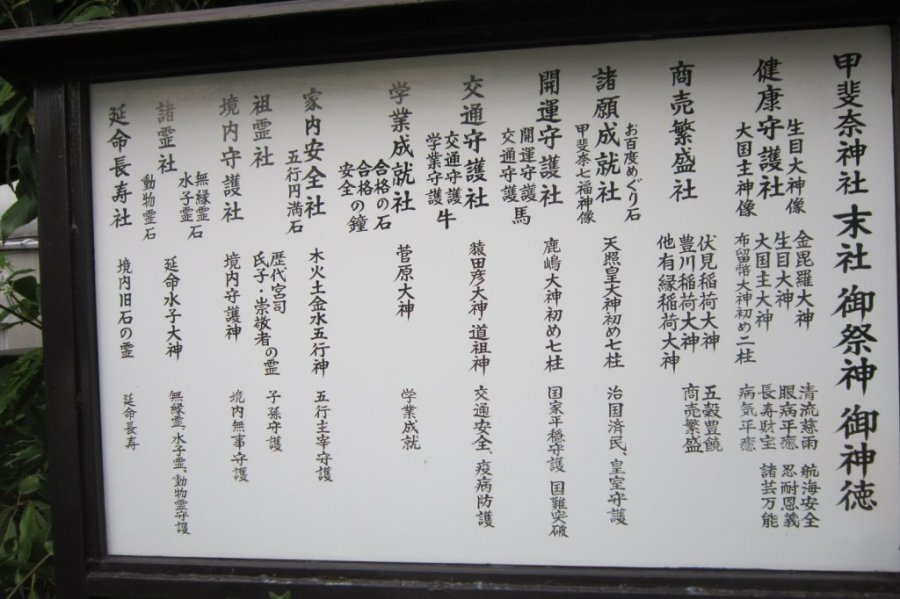 甲斐奈神社 末社 御祭神 御神徳
健康守護社
生目大神像
大国主神像
金毘羅大神
生目大神
大国主大神
布留幣大神初め二柱
清流慈雨 航海安全
眼病平癒 忍耐恩義
長寿財宝 諸芸万能
病気平癒
商売繁盛社
伏見稲荷大神
豊川稲荷大神
他有縁稲荷大神
五穀豊饒
商売繁盛
諸願成就社
お百度めぐり石
甲斐奈七福神像
天照皇大神初め七柱
治国済民、皇室守護
開運守護社
開運守護 馬
交通守護
鹿嶋大神初め七柱
国家平穏守護 国難突破
交通守護社
交通守護 牛
学業守護
猿田彦大神 道祖神
交通安全、疫病防護
学業成就社
合格の石
合格の鐘
安全
菅原大神
学業成就
家内安全社
五行円満石
木火土金水五行神
五行主宰守護
祖霊社
歴代宮司
氏子・崇敬者の霊
子孫守護
境内守護社
境内守護神
境内無事守護
諸霊社
無縁霊石
水子霊
動物霊石
延命水子大神
無縁霊、水子霊、動物霊守護
延命長寿社
境内旧石の霊
延命長寿